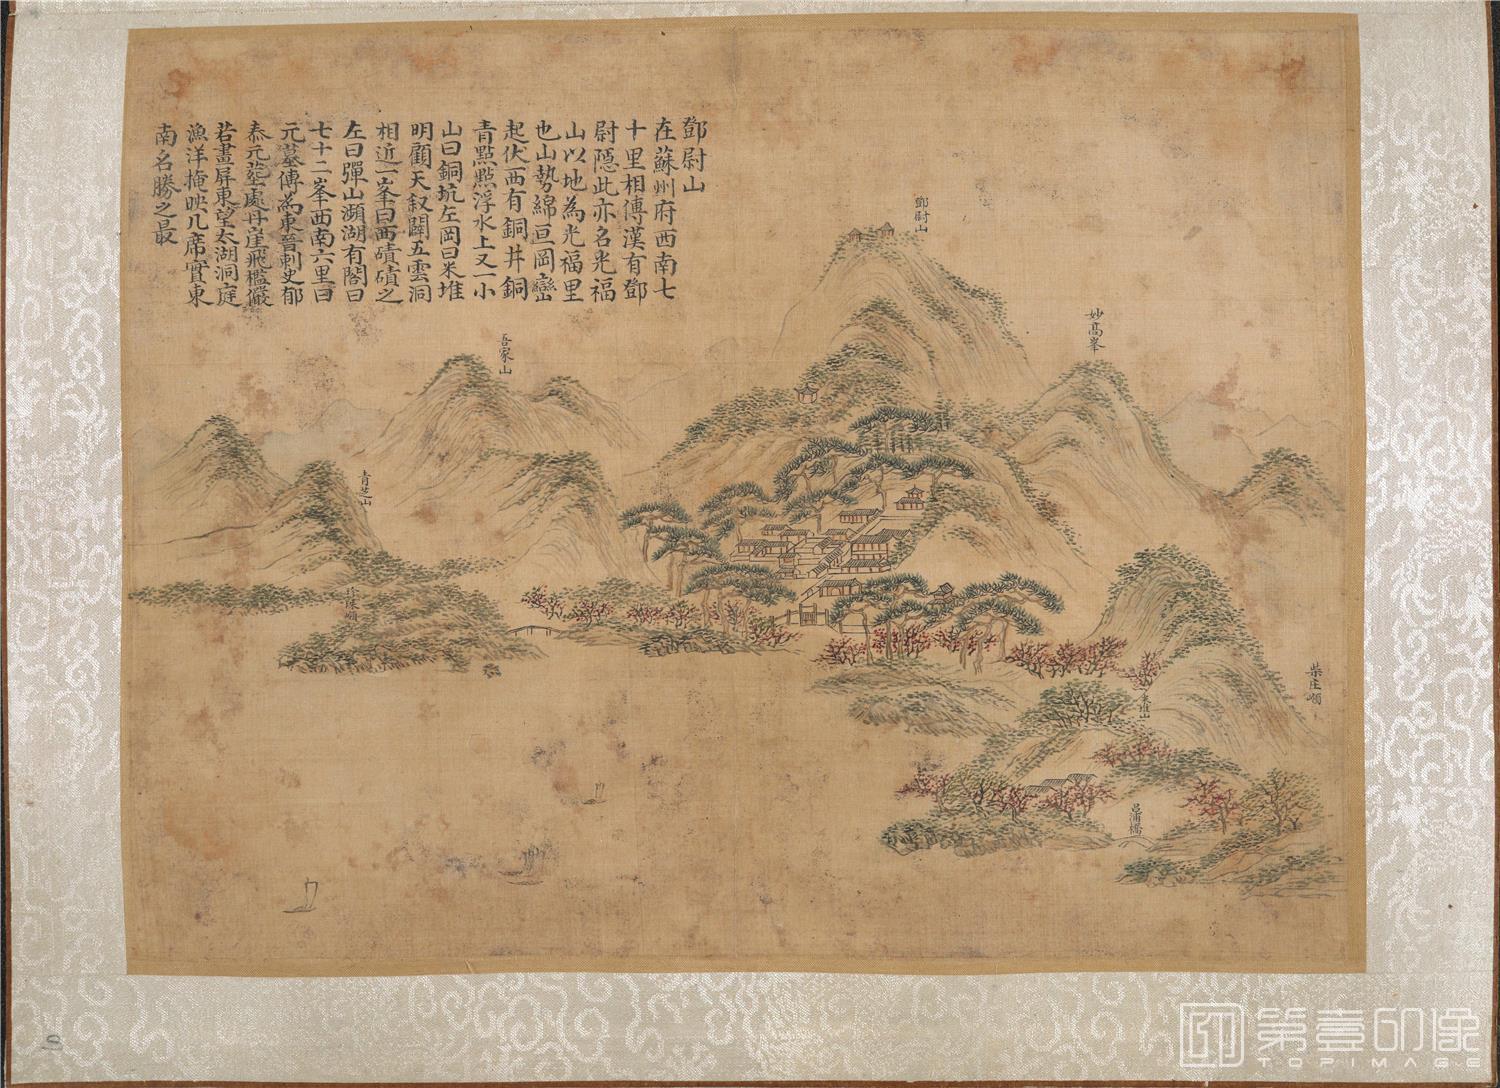 鄧尉山
在蘇州府西南七
十里相傳漢有鄧
尉隠此亦名光福
山以地為光福里
也山勢綿亘岡巒
起伏西有銅井銅
青點點浮水上又一小
山曰銅坑左岡曰米堆
明顧天叙闢五雲洞
相近一峯曰西磧磧之
左曰彈山瀕湖有閣曰
七十二峯西南六里曰
元墓傳為東晉刺史郁
泰元塟處丹崖飛檻儼
若畫屏東望太湖洞庭
漁洋掩映几席實東
南名勝之最
鄧尉山
妙高峯
吾家山
青芝山
珍珠嶺
柴庄嶺
山
菖蒲橋
第壹印像
TOPIMAGE